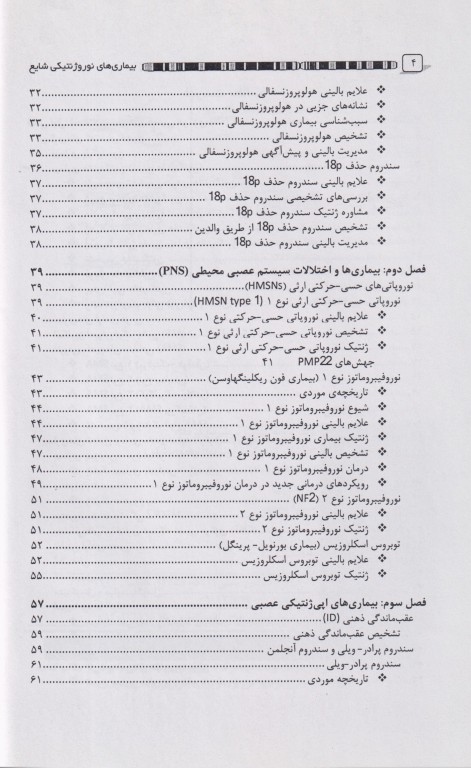 ۴ بیماری‌های نوروژنتیکی شایع
❖ علایم بالینی هولوپروزنسفالی ۳۲
❖ نشانه‌های جزیی در هولوپروزنسفالی ۳۲
❖ سبب‌شناسی بیماری هولوپروزنسفالی ۳۳
❖ تشخیص هولوپروزنسفالی ۳۳
❖ مدیریت بالینی و پیش‌آگهی هولوپروزنسفالی ۳۵
سندروم حذف 18p ۳۶
❖ علایم بالینی سندروم حذف 18p ۳۷
❖ بررسی‌های تشخیصی سندروم حذف 18p ۳۷
❖ مشاوره ژنتیک سندروم حذف 18p ۳۷
❖ تشخیص سندروم حذف 18p از طریق والدین ۳۸
❖ مدیریت بالینی سندروم حذف 18p ۳۸
فصل دوم: بیماری‌ها و اختلالات سیستم عصبی محیطی (PNS) ۳۹
نوروپاتی‌های حسی-حرکتی ارثی (HMSNs) ۳۹
نوروپاتی حسی-حرکتی ارثی نوع ۱ (HMSN type 1) ۳۹
❖ علایم بالینی نوروپاتی حسی-حرکتی نوع ۱ ۴۰
❖ تشخیص نوروپاتی حسی-حرکتی ارثی نوع ۱ ۴۱
❖ ژنتیک نوروپاتی حسی-حرکتی ارثی نوع ۱ ۴۱
جهش‌های PMP22 ۴۱
نوروفیبروماتوز نوع ۱ (بیماری فون ریکلینگهاوسن) ۴۳
❖ تاریخچه‌ی موردی ۴۳
❖ شیوع نوروفیبروماتوز نوع ۱ ۴۴
❖ علایم بالینی نوروفیبروماتوز نوع ۱ ۴۴
❖ ژنتیک بیماری نوروفیبروماتوز نوع ۱ ۴۷
❖ تشخیص بالینی نوروفیبروماتوز نوع ۱ ۴۷
❖ درمان نوروفیبروماتوز نوع ۱ ۴۸
❖ رویکردهای درمانی جدید در درمان نوروفیبروماتوز نوع ۱ ۴۹
نوروفیبروماتوز نوع ۲ (NF2) ۵۱
❖ علایم بالینی نوروفیبروماتوز نوع ۲ ۵۱
❖ ژنتیک نوروفیبروماتوز نوع ۲ ۵۱
توبروس اسکلروزیس (بیماری بورنویل- پرینگل) ۵۲
❖ علایم بالینی توبروس اسکلروزیس ۵۲
❖ ژنتیک توبروس اسکلروزیس ۵۵
فصل سوم: بیماری‌های اپی‌ژنتیکی عصبی ۵۷
عقب‌ماندگی ذهنی (ID) ۵۷
❖ تشخیص عقب‌ماندگی ذهنی ۵۹
سندروم پرادر- ویلی و سندروم آنجلمن ۵۹
سندروم پرادر-ویلی ۶۱
❖ تاریخچه موردی ۶۱